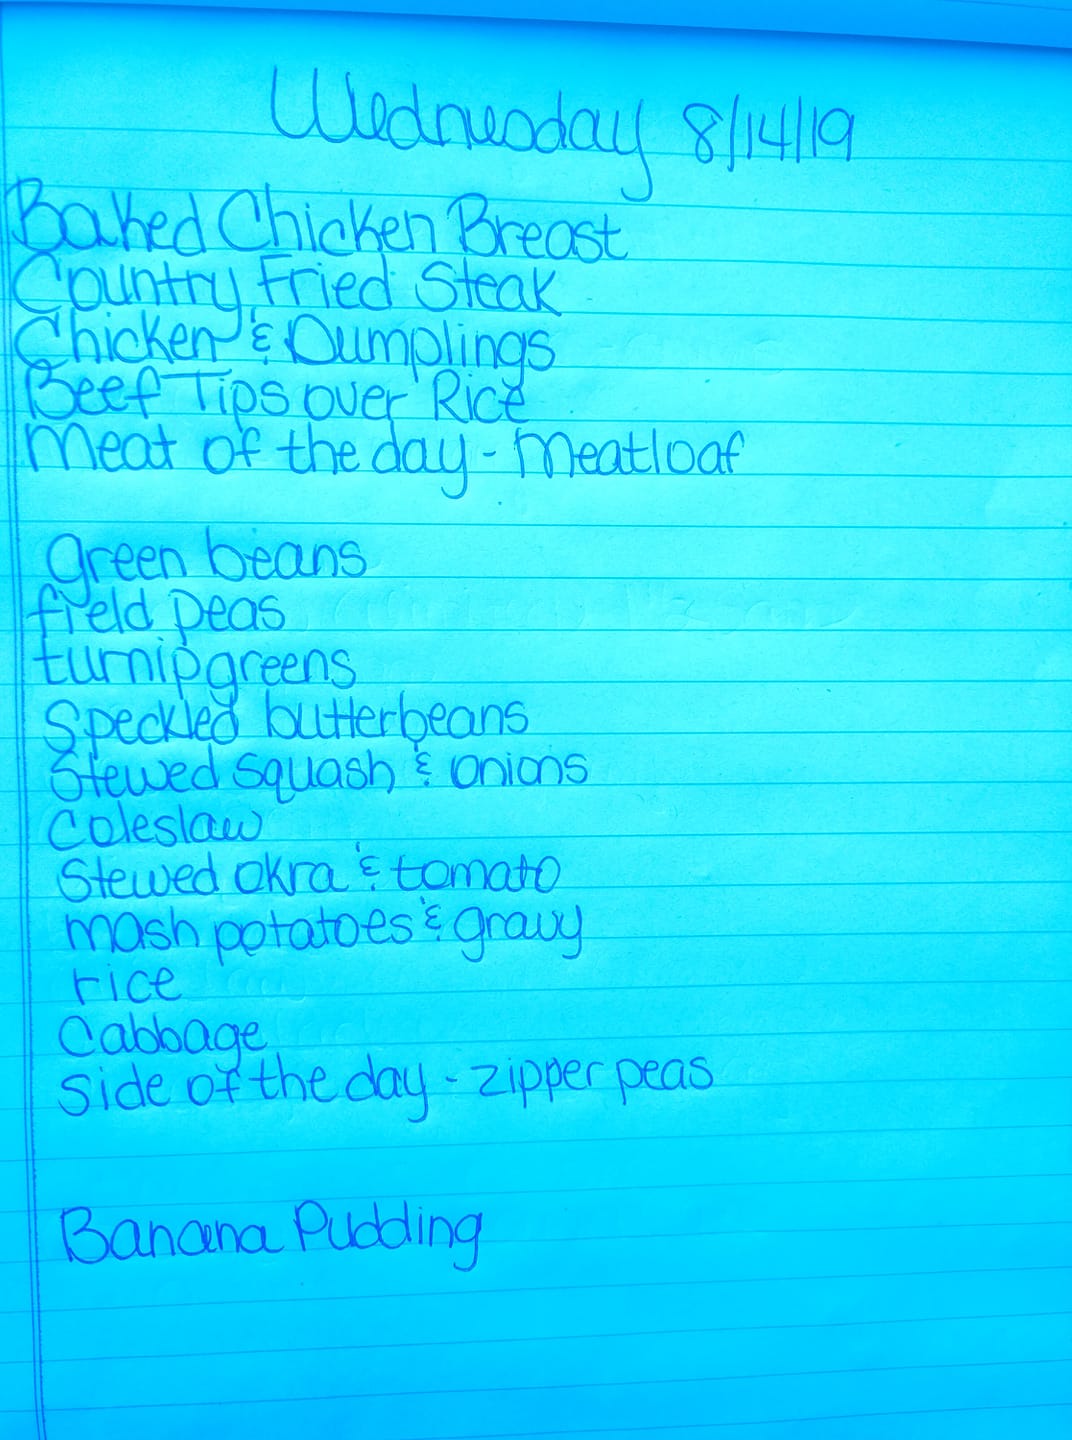 Wednesday 8/14/19
Baked Chicken Breast
Country Fried Steak
Chicken & Dumplings
Beef Tips over Rice
Meat of the day - Meatloaf
green beans
field peas
turnip greens
Speckled butterbeans
Stewed squash & onions
Coleslaw
Stewed okra & tomato
mash potatoes & gravy
rice
Cabbage
side of the day - zipper peas
Banana Pudding